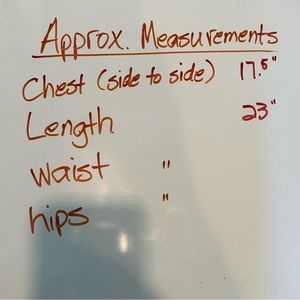 Approx. Measurements
Chest (side to side) 17.5"
Length 23"
Waist "
hips "